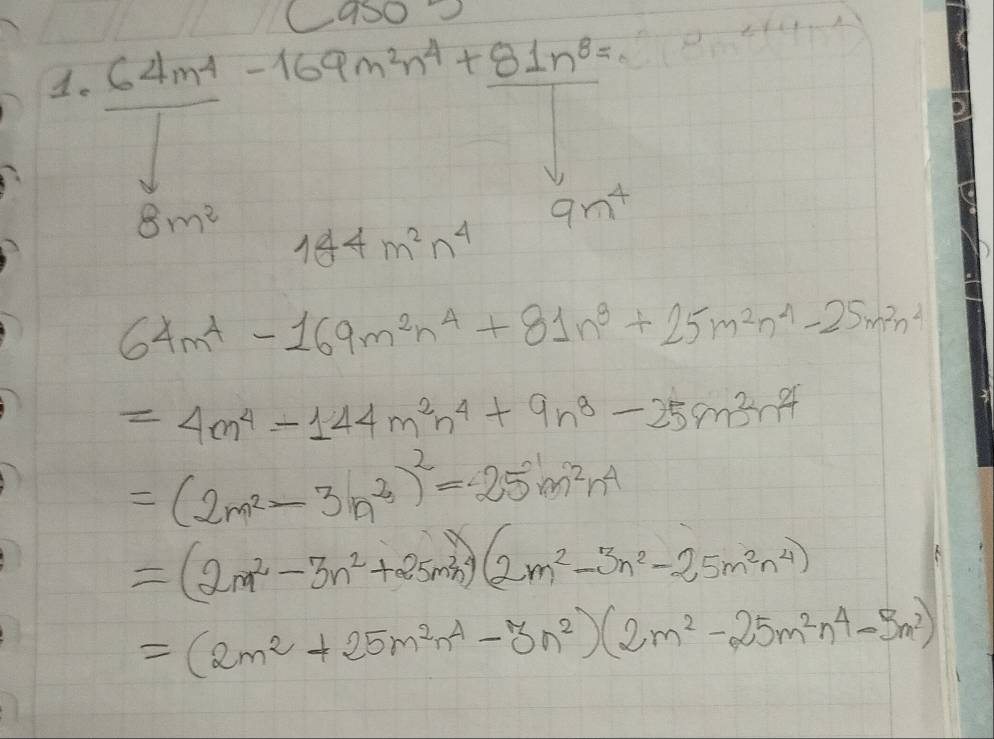 Caso 5
1. 64m⁴ - 169m²n⁴ + 81n⁸ =
8m²
9n⁴
144 m²n⁴
64m⁴ - 169m²n⁴ + 81n⁸ + 25m²n⁴ - 25m²n⁴
= 4m⁴ - 144m²n⁴ + 9n⁸ - 25m²n⁴
= (2m² - 3n²)² = 25m²n⁴
= (2m² - 3n² + 25m²n⁴)(2m² - 3n² - 25m²n⁴)
= (2m² + 25m²n⁴ - 3n²)(2m² - 25m²n⁴ - 3m²)